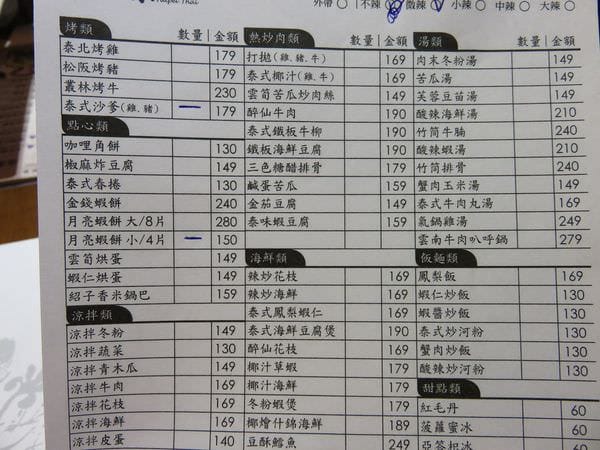 外帶 不辣 微辣 小辣 中辣 大辣
烤類 數量 金額
泰北烤雞 179
松阪烤豬 179
叢林烤牛 230
泰式沙爹(雞.豬) 179
點心類
咖哩角餅 130
椒麻炸豆腐 149
泰式春捲 130
金錢蝦餅 240
月亮蝦餅 大/8片 280
月亮蝦餅 小/4片 150
雲筍烘蛋 149
蝦仁烘蛋 149
紹子香米鍋巴 159
涼拌類
涼拌冬粉 149
涼拌蔬菜 130
涼拌青木瓜 149
涼拌牛肉 169
涼拌花枝 169
涼拌海鮮 169
涼拌皮蛋 140
熱炒肉類 數量 金額
打拋(雞.豬.牛) 169
泰式椰汁(雞.牛) 169
雲筍苦瓜炒肉絲 149
醉仙牛肉 190
泰式鐵板牛柳 190
鐵板海鮮豆腐 190
三色糖醋排骨 179
鹹蛋苦瓜 159
金茄豆腐 149
泰味蝦豆腐 159
海鮮類
辣炒花枝 169
辣炒海鮮 169
泰式鳳梨蝦仁 169
泰式海鮮豆腐煲 190
醉仙花枝 169
椰汁草蝦 179
椰汁海鮮 179
冬粉蝦煲 179
椰燴什錦海鮮 189
豆酥鱈魚 249
湯類 數量 金額
肉末冬粉湯 149
苦瓜湯 149
芙蓉豆苗湯 149
酸辣海鮮湯 210
竹筒牛腩 240
酸辣蝦湯 210
竹筒排骨 240
蟹肉玉米湯 149
泰式牛肉丸湯 169
氣鍋雞湯 249
雲南牛肉叭呼鍋 279
飯麵類
鳳梨飯 169
蝦仁炒飯 130
蝦醬炒飯 130
泰式炒河粉 130
蟹肉炒飯 130
酸辣炒河粉 130
甜點類
紅毛丹 60
菠蘿蜜冰 60
亞答枳冰 60